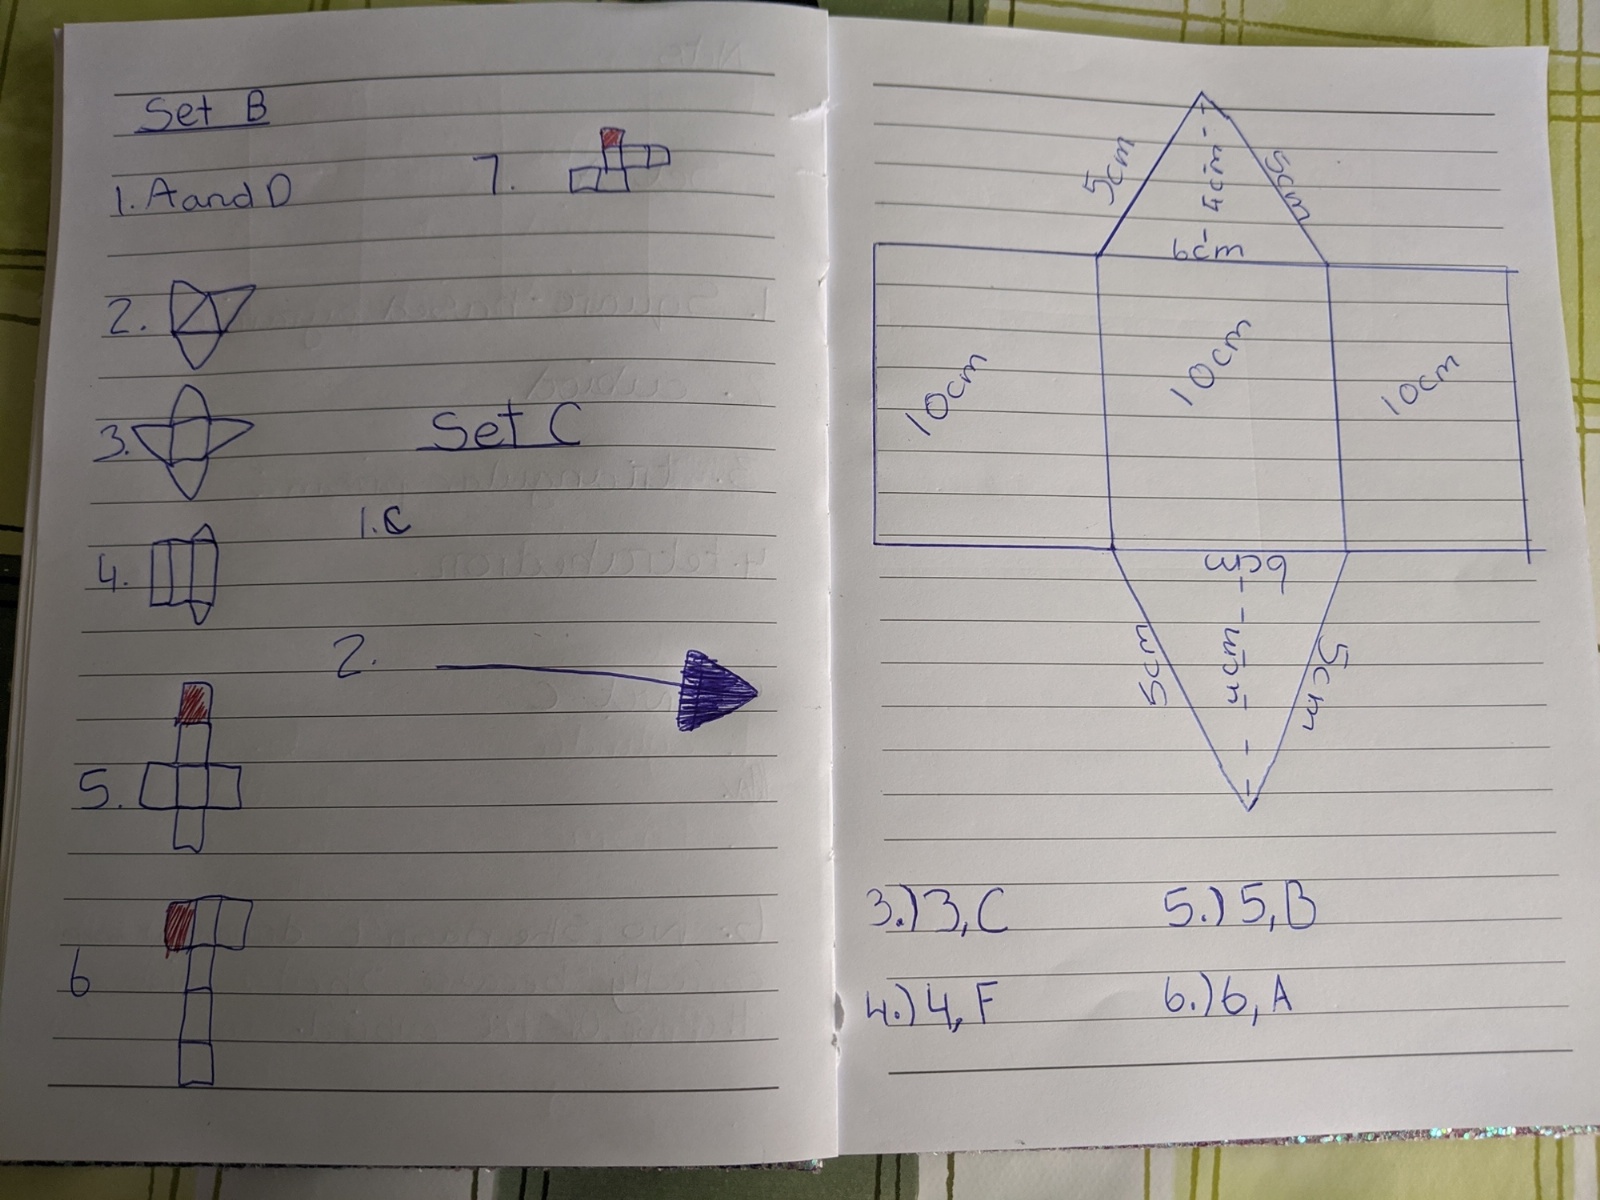 Set B
1. A and D
7.
2.
3.
Set C
1. C
4.
2.
5.
6
5cm
4cm
5cm
6cm
10cm
10cm
10cm
6cm
5cm
4cm
5cm
3.) 3, C
5.) 5, B
4.) 4, F
6.) 6, A